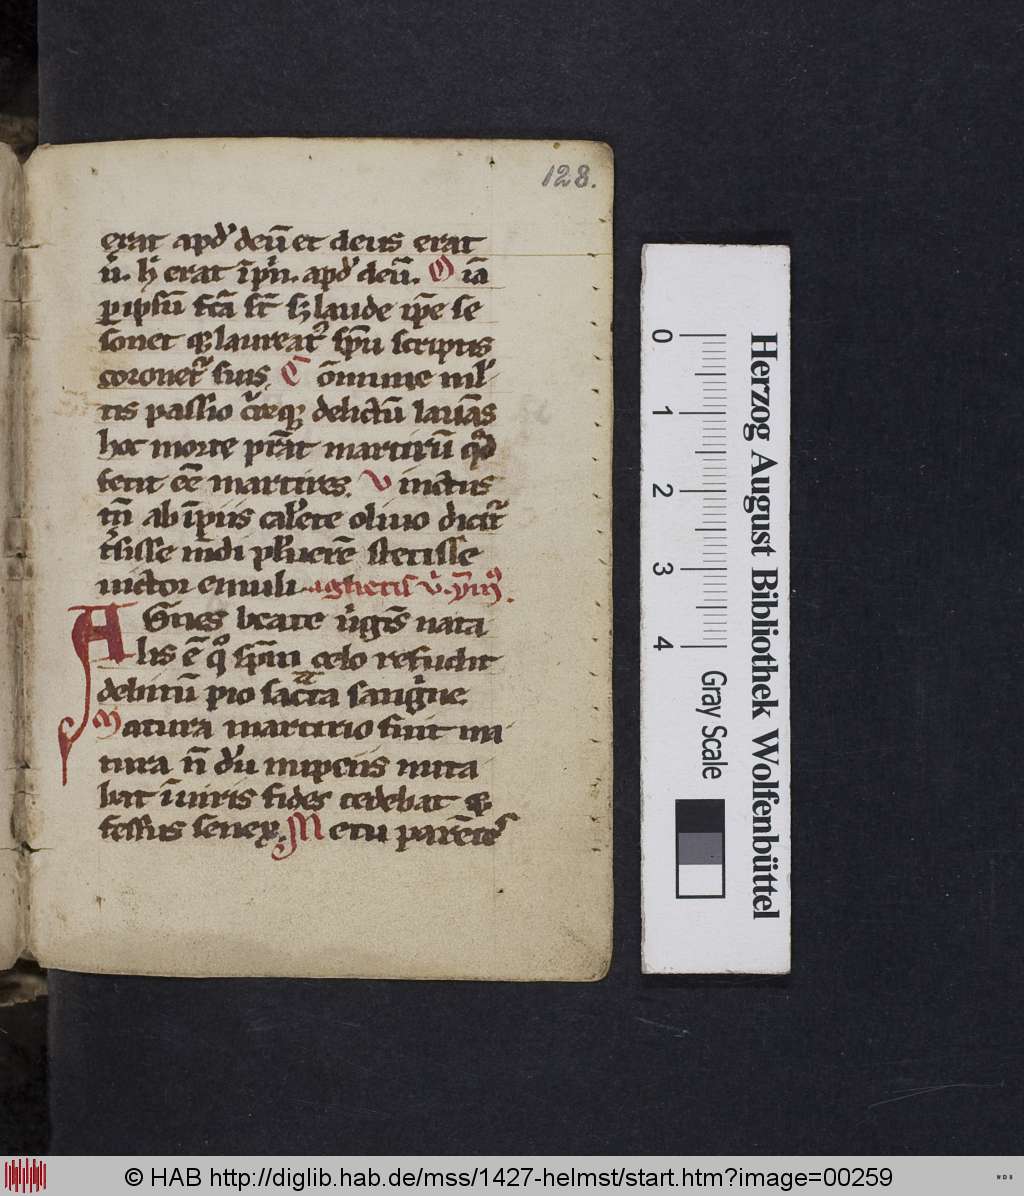 128.
erat apd' deū et deus erat
ů. h̄ erat ī pͥn. apd' deū. O īa
ꝑ ipsū fc̄a st̄ sꝫ laude ip̄e se
sonet qꝫ laureat᷒ sp̄u scriptis
coronet᷒ suis. C ōmune ml'
tis passio c̾ īeqꝫ delictū lauās
hoc morte p̄rat martirū qͦd
fecit oēs martires. V inctus
tn̄ ab ip̄iis cal'ere oliuo dicit᷒
t̾sisse mūdi pl'uerē stetisse
uictor emuli agnetis v̓. ym̄9.
A Gnes beate ůgis̄ nata
lis ē qͦ sp̄m celo refudit
debitū pio sac̄ta sangͥne
M atura martirio fuit ma
tura n̄ dū nupciis nuta
bat ī uiris fides cedebat &
fessus senex. M etu parēte᷒
Herzog August Bibliothek Wolfenbüttel
0 1 2 3 4
Gray Scale
© HAB http://diglib.hab.de/mss/1427-helmst/start.htm?image=00259